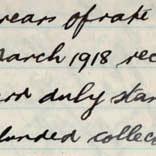 years of rate
March 1918 rec
duly stam
funded collec